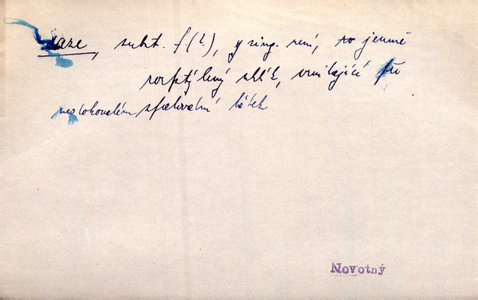 saze, subst. f (?), y sing. není, to jemně
rozptýlený uhlík, vznikající při
nedokonalém spalování látek
Novotný